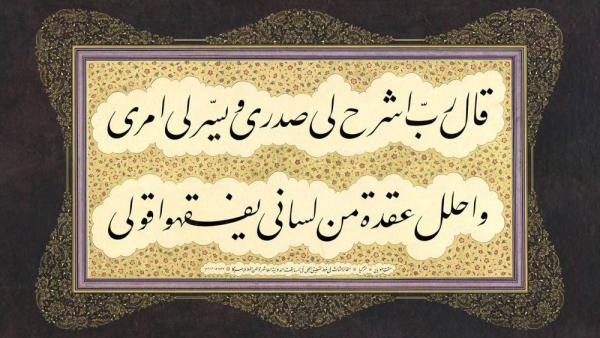 قال ربّ اشرح لى صدرى ويسّر لى امرى
واحلل عقدة من لسانى يفقهوا قولى